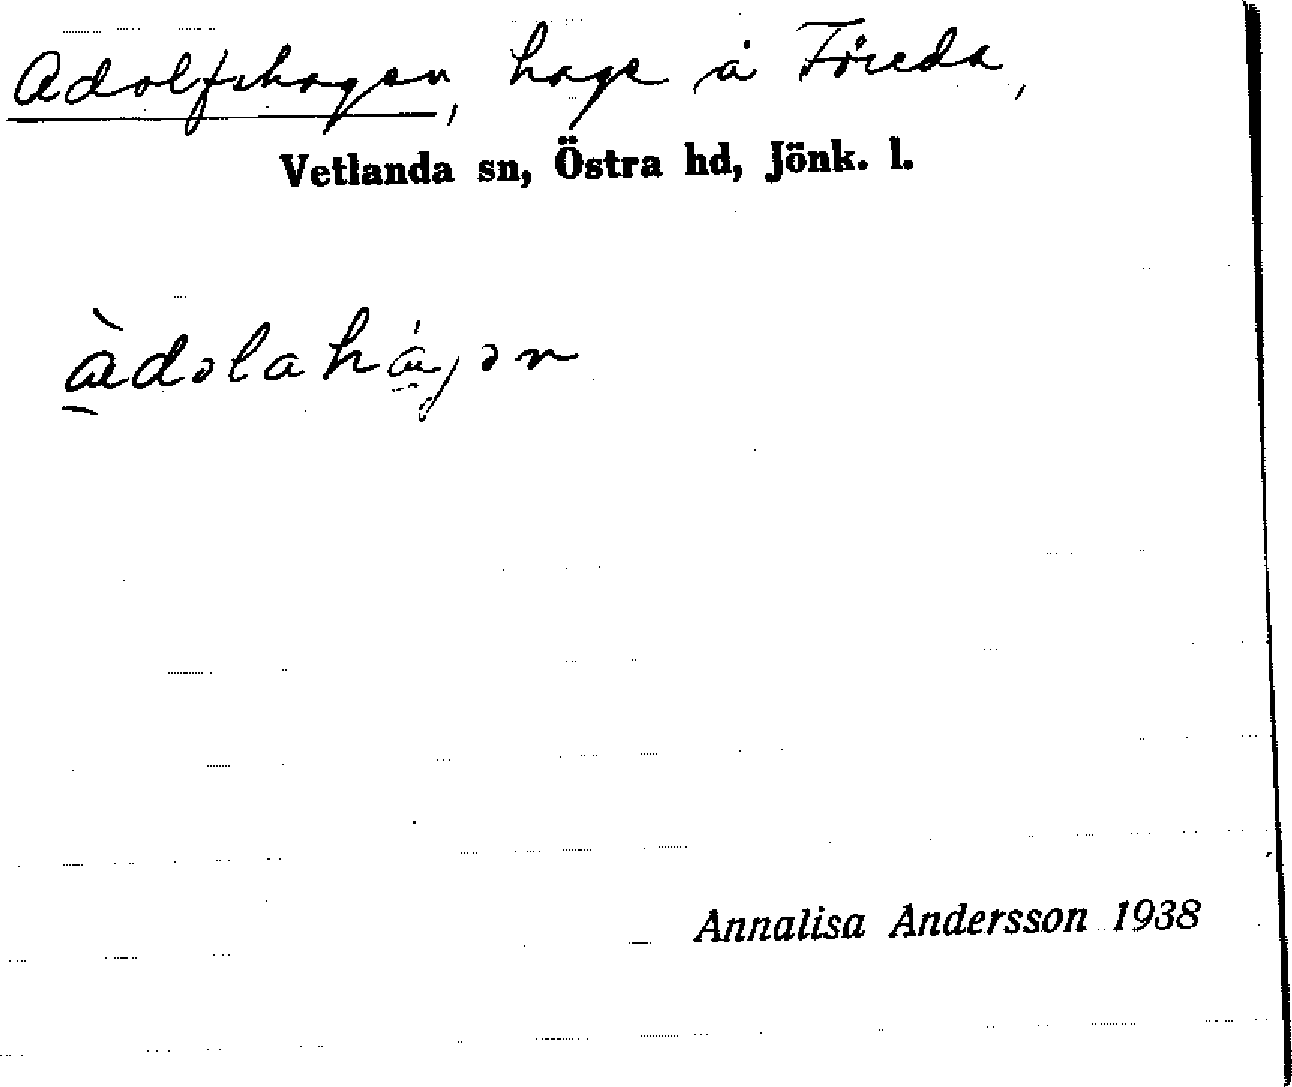 Adolfshagen, hage å Föreda,
Vetlanda sn, Östra hd, Jönk. l.
àdəlahágən
Annalisa Andersson 1938